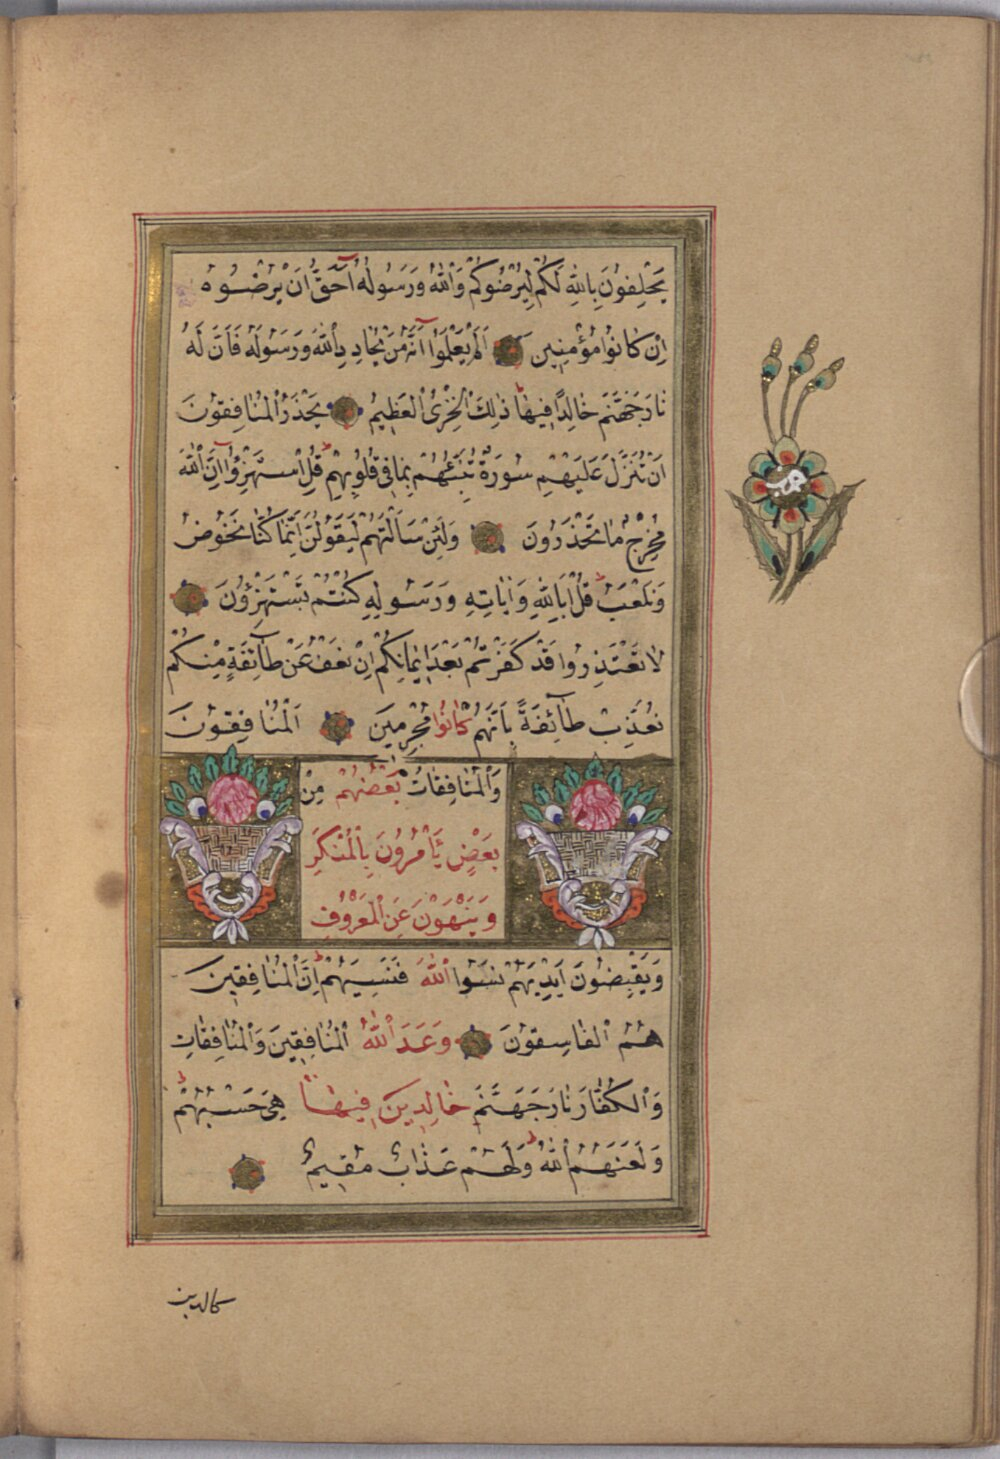 يَحْلِفُونَ بِاللّٰهِ لَكُمْ لِيُرْضُوكُمْ وَاللّٰهُ وَرَسُولُهُ اَحَقُّ اَنْ يُرْضُوهُ
اِنْ كَانُوا مُؤْمِنِينَ اَلَمْ يَعْلَمُوا اَنَّهُ مَنْ يُحَادِدِ اللّٰهَ وَرَسُولَهُ فَاَنَّ لَهُ
نَارَ جَهَنَّمَ خَالِدًا فِيهَا ذٰلِكَ الْخِزْىُ الْعَظِيمُ يَحْذَرُ الْمُنَافِقُونَ
اَنْ تُنَزَّلَ عَلَيْهِمْ سُورَةٌ تُنَبِّئُهُمْ بِمَا فِى قُلُوبِهِمْ قُلِ اسْتَهْزِؤُا اِنَّ اللّٰهَ
مُخْرِجٌ مَا تَحْذَرُونَ وَلَئِنْ سَاَلْتَهُمْ لَيَقُولُنَّ اِنَّمَا كُنَّا نَخُوضُ
وَنَلْعَبُ قُلْ اَبِاللّٰهِ وَاٰيَاتِهِ وَرَسُولِهِ كُنْتُمْ تَسْتَهْزِؤُنَ
لَا تَعْتَذِرُوا قَدْ كَفَرْتُمْ بَعْدَ اِيمَانِكُمْ اِنْ نَعْفُ عَنْ طَائِفَةٍ مِنْكُمْ
نُعَذِّبْ طَائِفَةً بِاَنَّهُمْ كَانُوا مُجْرِمِينَ اَلْمُنَافِقُونَ
وَالْمُنَافِقَاتُ بَعْضُهُمْ مِنْ
بَعْضٍ يَاْمُرُونَ بِالْمُنْكَرِ
وَيَنْهَوْنَ عَنِ الْمَعْرُوفِ
وَيَقْبِضُونَ اَيْدِيَهُمْ نَسُوا اللّٰهَ فَنَسِيَهُمْ اِنَّ الْمُنَافِقِينَ
هُمُ الْفَاسِقُونَ وَعَدَ اللّٰهُ الْمُنَافِقِينَ وَالْمُنَافِقَاتِ
وَالْكُفَّارَ نَارَ جَهَنَّمَ خَالِدِينَ فِيهَا هِىَ حَسْبُهُمْ
وَلَعَنَهُمُ اللّٰهُ وَلَهُمْ عَذَابٌ مُقِيمٌ
كالذين